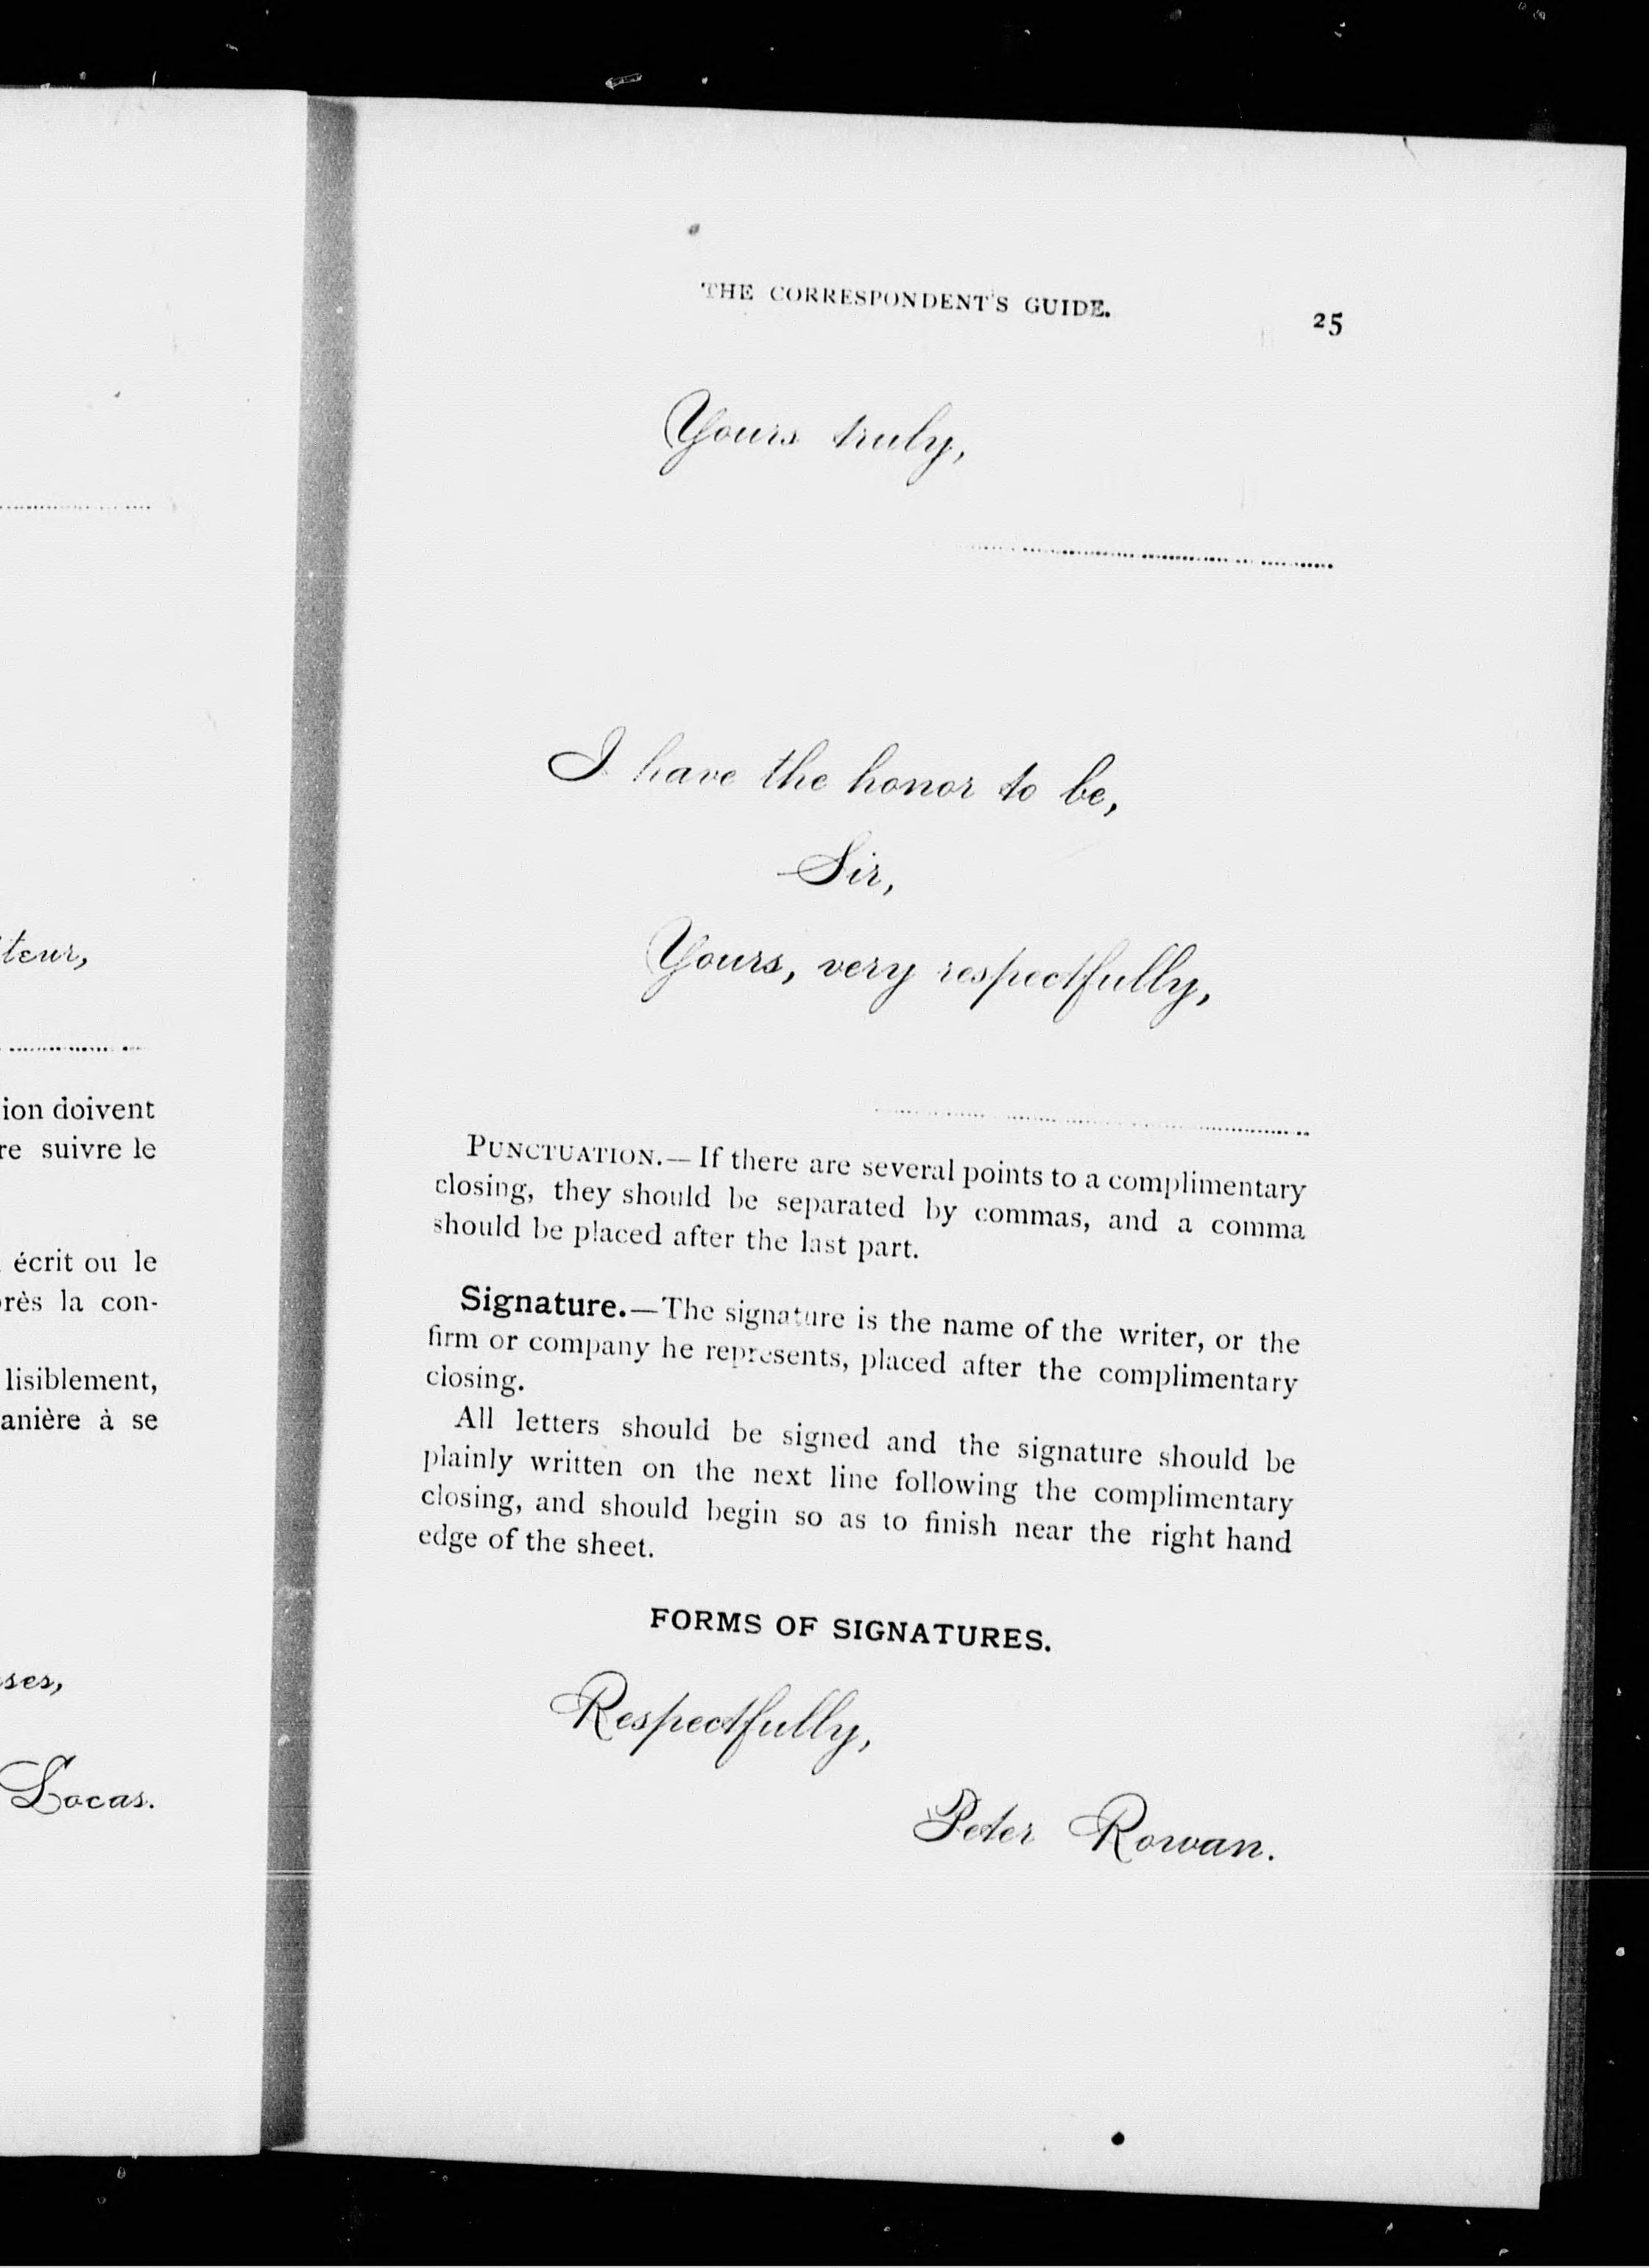 iteur,
ion doivent
re suivre le
écrit ou le
près la con-
lisiblement,
anière à se
ses,
Locas.
THE CORRESPONDENT'S GUIDE. 25
Yours truly,
I have the honor to be,
Sir,
Yours, very respectfully,
PUNCTUATION.—If there are several points to a complimentary
closing, they should be separated by commas, and a comma
should be placed after the last part.
Signature.—The signature is the name of the writer, or the
firm or company he represents, placed after the complimentary
closing.
All letters should be signed and the signature should be
plainly written on the next line following the complimentary
closing, and should begin so as to finish near the right hand
edge of the sheet.
FORMS OF SIGNATURES.
Respectfully,
Peter Rowan.